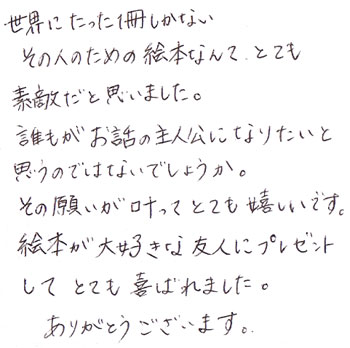 世界にたった1冊しかない
その人のための絵本なんて、とても
素敵だと思いました。
誰もがお話の主人公になりたいと
思うのではないでしょうか。
その願いが叶ってとても嬉しいです。
絵本が大好きな友人にプレゼント
してとても喜ばれました。
ありがとうございます。